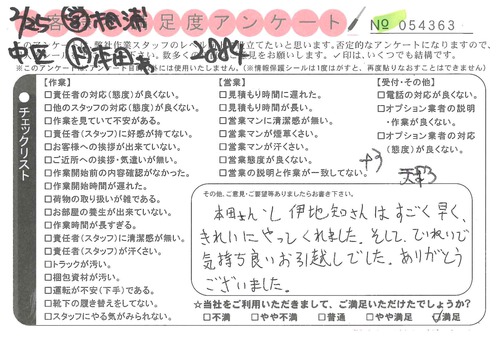 2/25
お客様満足度アンケート
№ 054363
中区
2884
このアンケートは弊社作業スタッフのレベル向上に役立てたいと思います。否定的なアンケートになりますので、
✓印は、いくつでも結構です。
※このアンケートは
目的以外には使用いたしません。(※情報保護シールは1度はがすと、再度貼りなおすことはできません)
チェックリスト
【作業】
□責任者の対応(態度)が良くない。
□他のスタッフの対応(態度)が良くない。
□作業を見ていて不安がある。
□責任者(スタッフ)に好感が持てない。
□お客様への挨拶が出来ていない。
□ご近所への挨拶・気遣いが無い。
□作業開始前の内容確認がなかった。
□作業開始時間が遅れた。
□荷物の取り扱いが雑である。
□お部屋の養生が出来ていない。
□作業時間が長すぎる。
□責任者(スタッフ)に清潔感が無い。
□責任者(スタッフ)が汗くさい。
□トラックが汚い。
□梱包資材が汚い。
□運転が不安(下手)である。
□靴下の履き替えをしてない。
□スタッフにやる気がみられない。
【営業】
□見積もり時間に遅れた。
□見積もり時間が長い。
□営業マンに清潔感が無い。
□営業マンが煙草くさい。
□営業マンが汗くさい。
□営業態度が良くない。
□営業の説明と作業が一致してない。
【受付・その他】
□電話の対応が良くない。
□オプション業者の説明
・作業が良くない。
□オプション業者の対応
(態度)が良くない。
その他、ご意見・ご要望等ありましたらお書き下さい。
本田さん、伊地知さんはすごく早く、
きれいにやってくれました。そして、ていねいで
気持ち良いお引越しでした。ありがとう
ございました。
☆当社をご利用いただきまして、ご満足いただけたでしょうか?
□不満 □やや不満 □普通 □やや満足 ☑満足